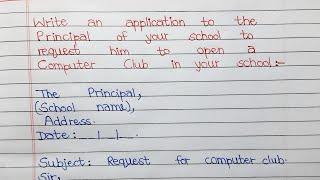 Write an application to the
Principal of your school to
request him to open a
Computer Club in your school:-
The Principal,
(School name),
Address.
Date:__/__/__.
Subject: Request for computer club.
Sir,